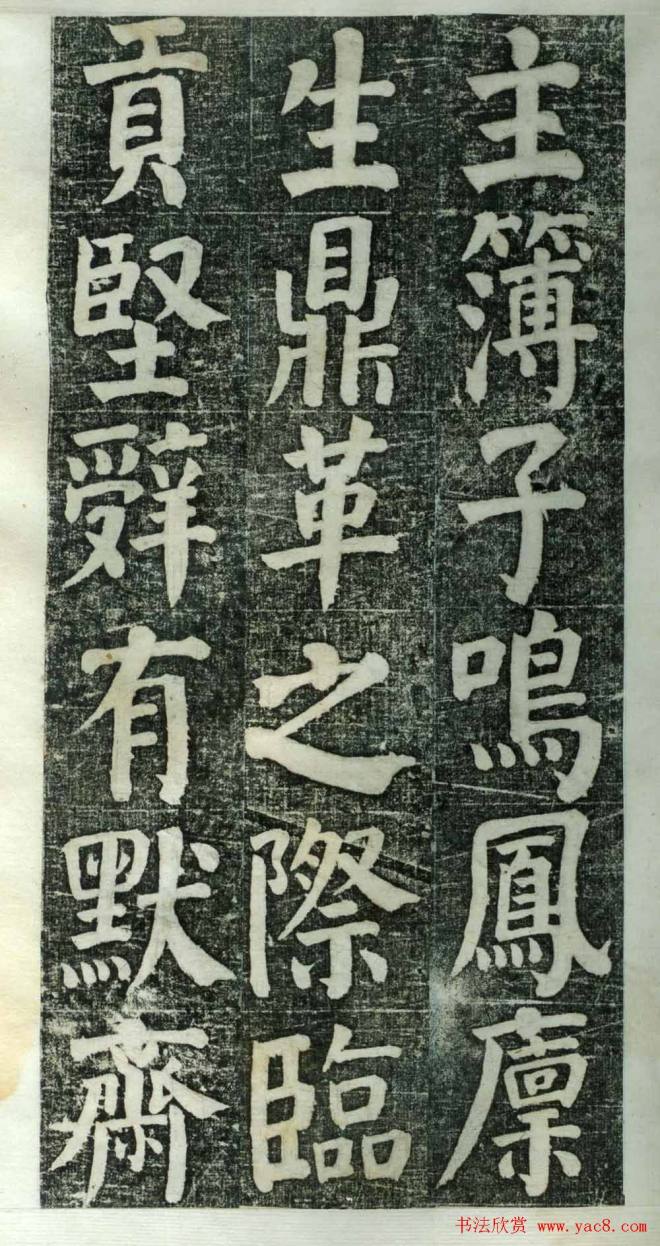 主簿子鳴鳳廪
生鼎革之際臨
貢堅辭有默齋
书法欣赏 www.yac8.com